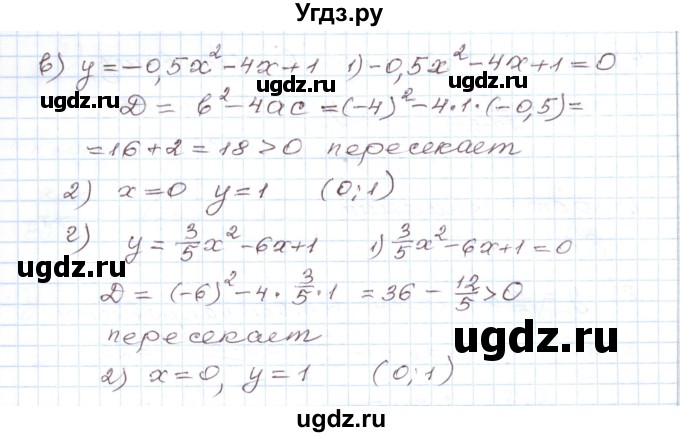 Угдз.ру
в) y=-0,5x²-4x+1 1) -0,5x²-4x+1=0
ugdz.ru ugdz.ru ugdz.ru
Д = b²-4ac =(-4)²-4·1·(-0,5)=
=16+2=18>0 пересекает
2) x=0 y=1 (0;1)
ugdz.ru
г) y=3/5x²-6x+1 1) 3/5x²-6x+1=0
ugdz.ru
Д = (-6)²-4·3/5·1 =36-12/5>0
пересекает
ugdz.ru
2) x=0, y=1 (0;1)
ugdz.ru